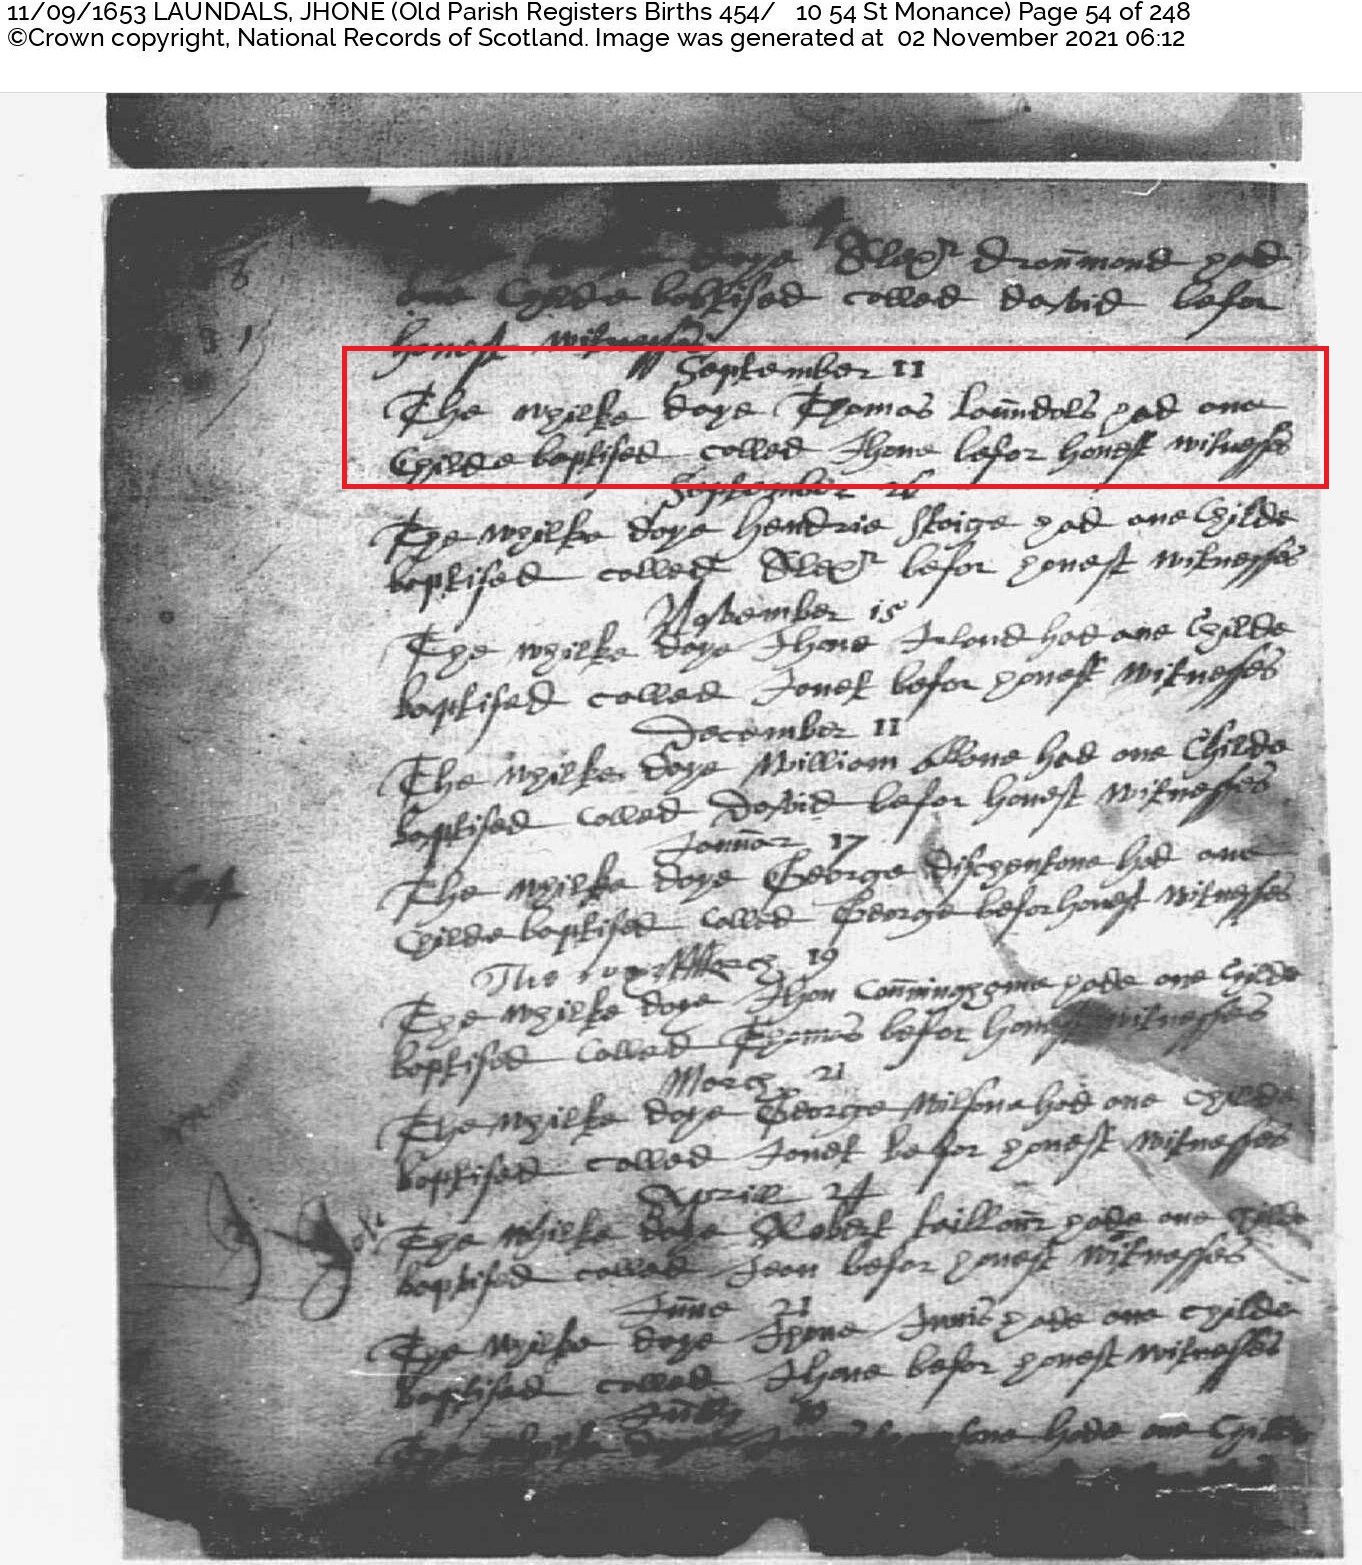 11/09/1653 LAUNDALS, JHONE (Old Parish Registers Births 454/ 10 54 St Monance) Page 54 of 248
©Crown copyright, National Records of Scotland. Image was generated at 02 November 2021 06:12
daye Alexr Drommond had
ane Childe babtised called david befor
honest witnesses
September 11
The whilke daye Thomas Laundals had one
Childe baptised called Jhone befor honest witnesses
September 26
The whilke daye hendrie had one Childe
baptised called Alexr befor honest witnesses
November 15
The whilke daye Jhone had one Childe
baptised called Jonet befor honest witnesses
December 11
The whilke daye William had one Childe
baptised called david befor honest witnesses
Januar 17
The whilke daye George had one
Childe baptised called George befor honest witnesses
March 19
The whilke daye Jhon Conninghame hade one Childe
baptised called Thomas befor honest witnesses
March 21
The whilke daye George Wilsone had one Childe
baptised called Jonet befor honest witnesses
Aprill 24
The whilke daye Robert hade one Childe
baptised called Jean befor honest witnesses
June 21
The whilke daye Jhone Innis hade one Childe
baptised called Jhone befor honest witnesses
The whilke daye hade one Childe